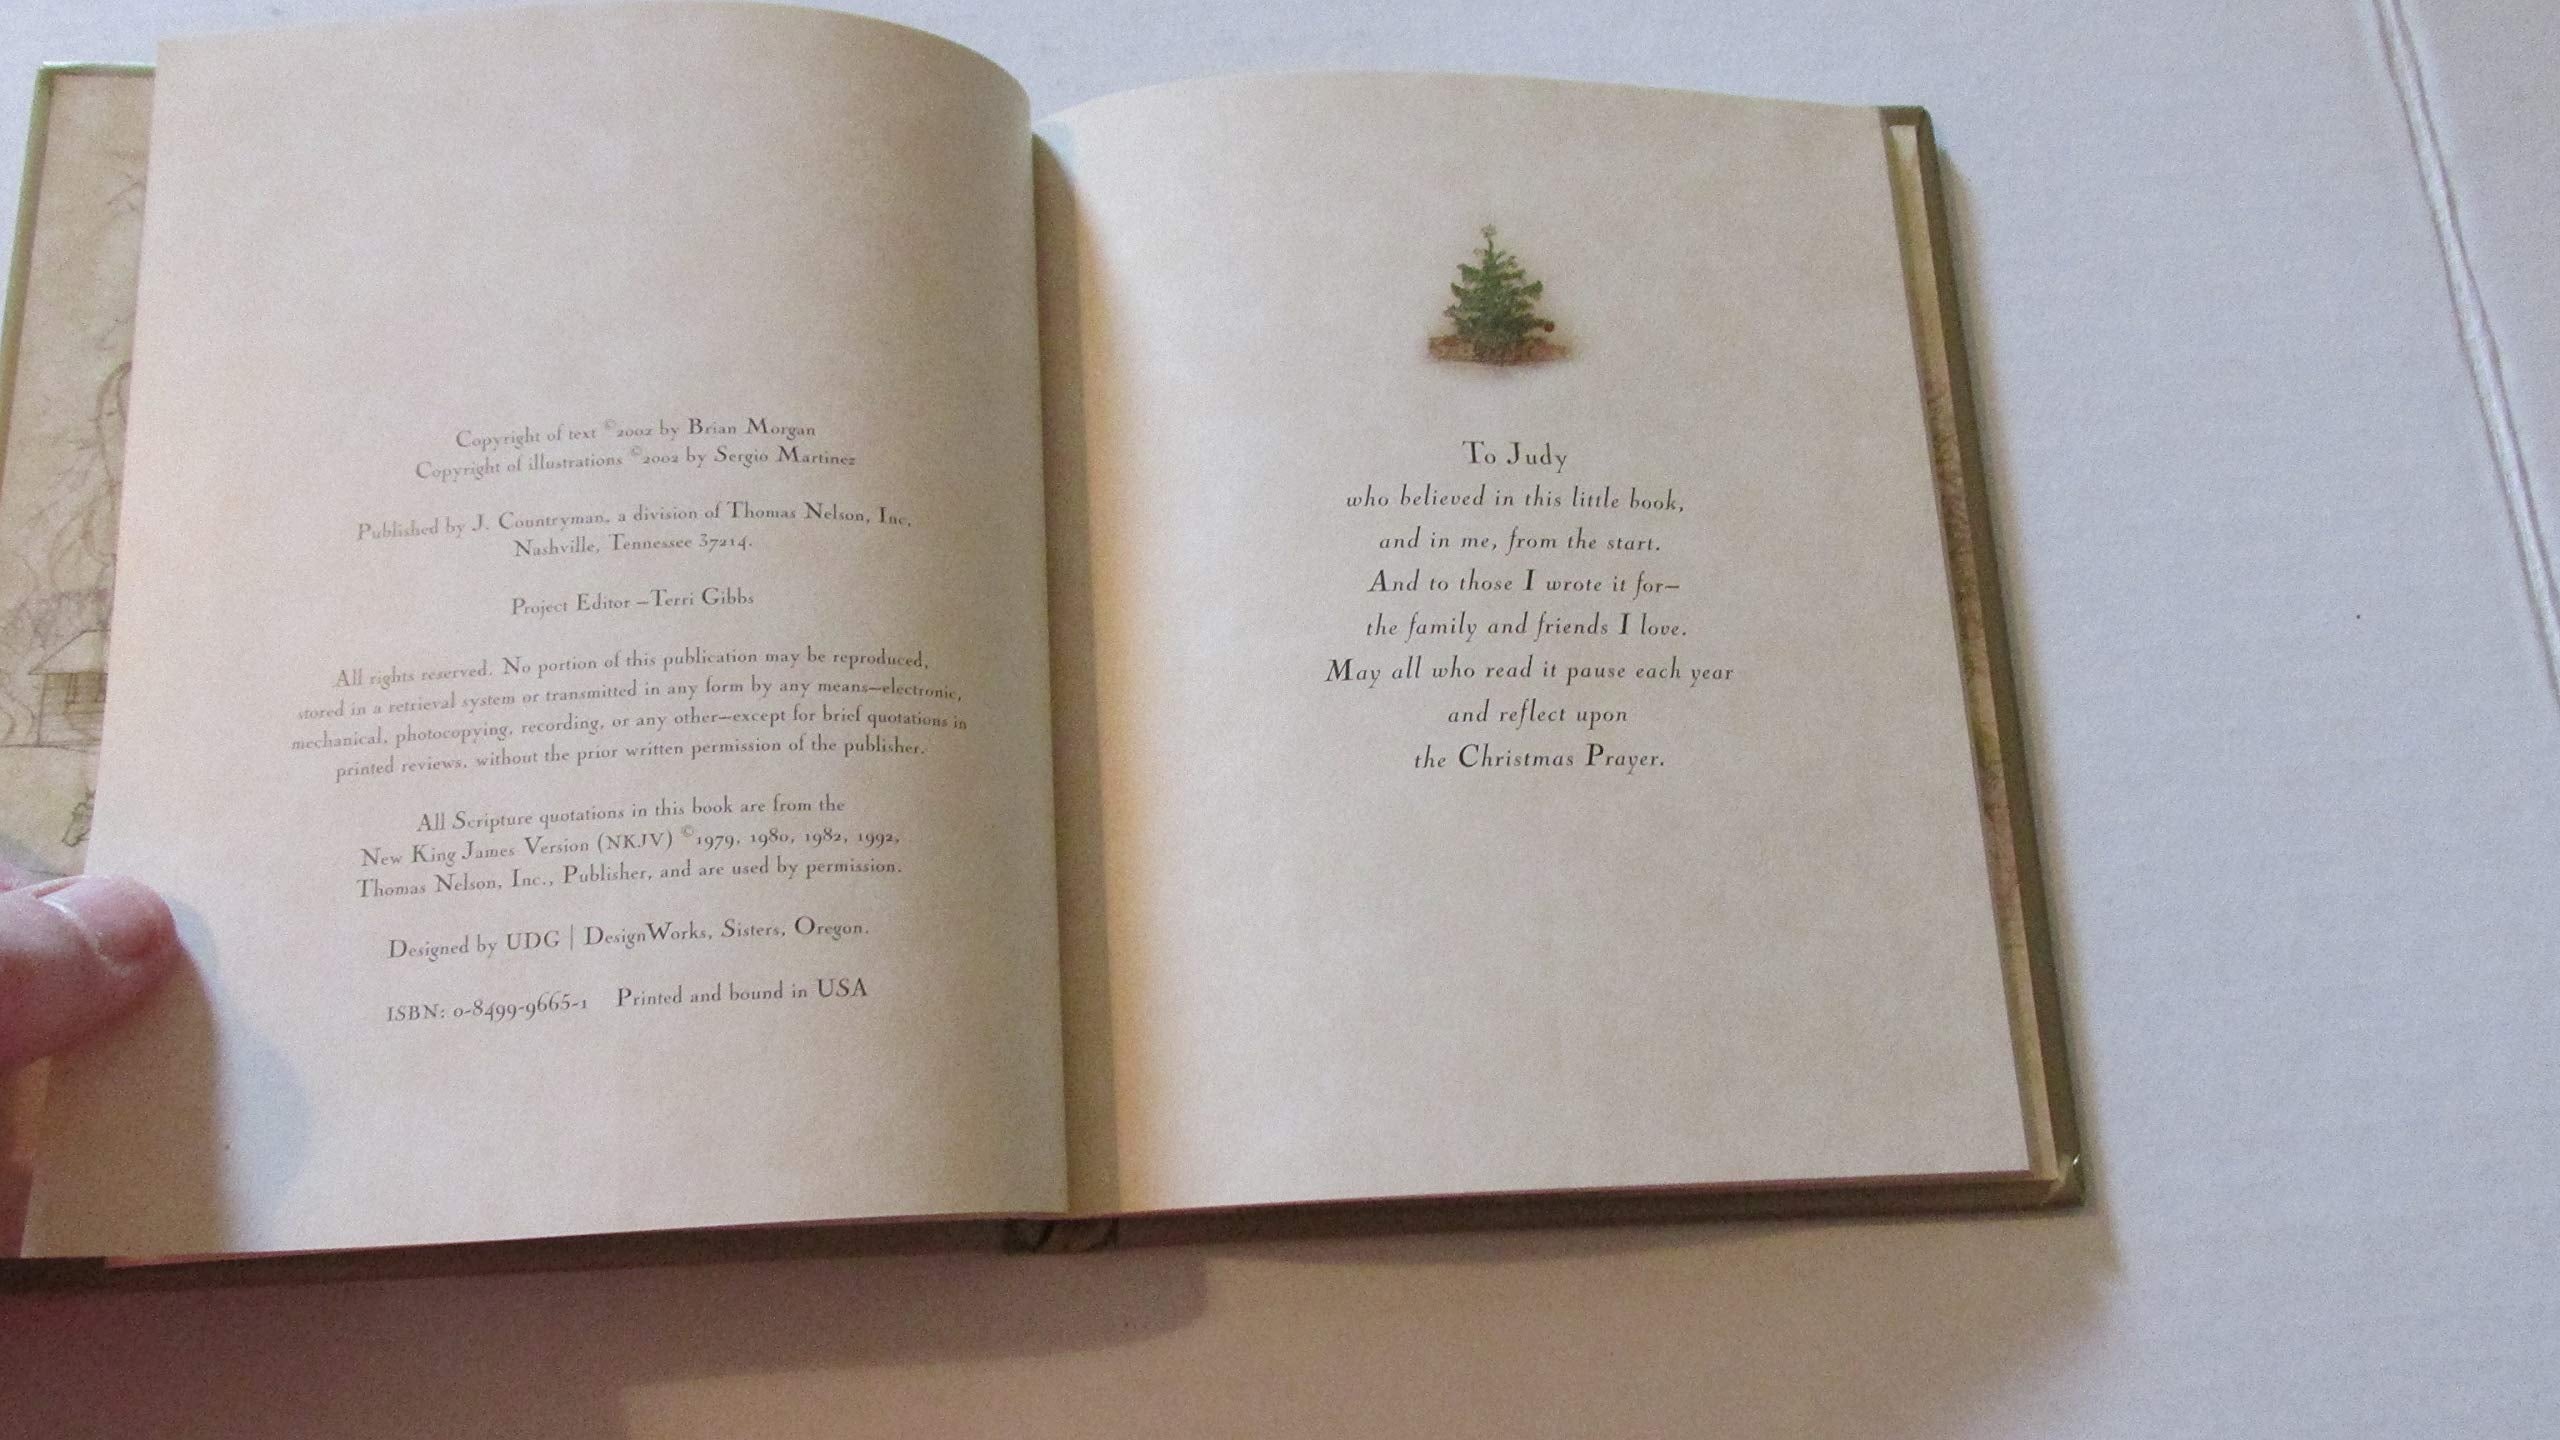 Copyright of text ©2002 by Brian Morgan
Copyright of illustrations ©2002 by Sergio Martinez
Published by J. Countryman, a division of Thomas Nelson, Inc,
Nashville, Tennessee 37214.
Project Editor—Terri Gibbs
All rights reserved. No portion of this publication may be reproduced,
stored in a retrieval system or transmitted in any form by any means—electronic,
mechanical, photocopying, recording, or any other—except for brief quotations in
printed reviews, without the prior written permission of the publisher.
All Scripture quotations in this book are from the
New King James Version (NKJV) ©1979, 1980, 1982, 1992,
Thomas Nelson, Inc., Publisher, and are used by permission.
Designed by UDG | DesignWorks, Sisters, Oregon.
ISBN: 0-8499-9665-1 Printed and bound in USA
To Judy
who believed in this little book,
and in me, from the start.
And to those I wrote it for—
the family and friends I love.
May all who read it pause each year
and reflect upon
the Christmas Prayer.